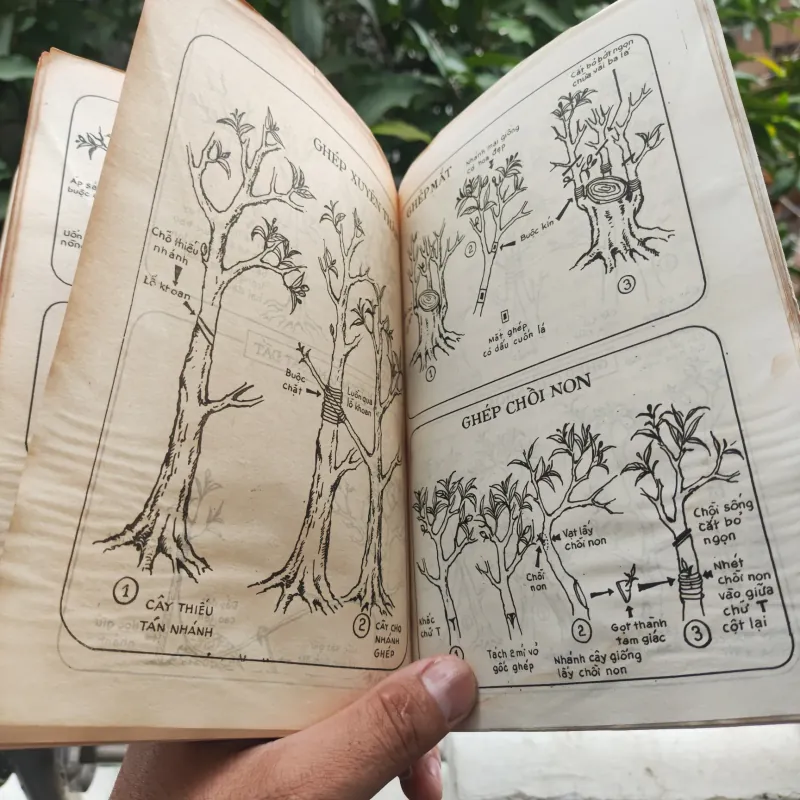 Áp
buộc
Uốn
GHÉP XUYÊN
Chỗ thiếu
nhánh
Lổ khoan
Buộc
chặt
Luồn qua
lổ khoan
1
CÂY THIẾU
TÁN NHÁNH
2
CÂY CHO
NHÁNH
GHÉP
GHÉP MẮT
Nhánh mai giống
có hoa đẹp
Cắt bỏ bớt ngọn
chừa vài ba lá
Buộc kín
2
1
Mắt ghép
có dấu cuốn lá
3
GHÉP CHỒI NON
Khắc
chữ T
1
Tách 2 mí vỏ
gốc ghép
Vạt lấy
chồi non
Chồi
non
2
Nhánh cây giống
lấy chồi non
Gọt thành
tam giác
3
Chồi sống
cắt bỏ
ngọn
Nhét
chồi non
vào giữa
chữ T
cột lại